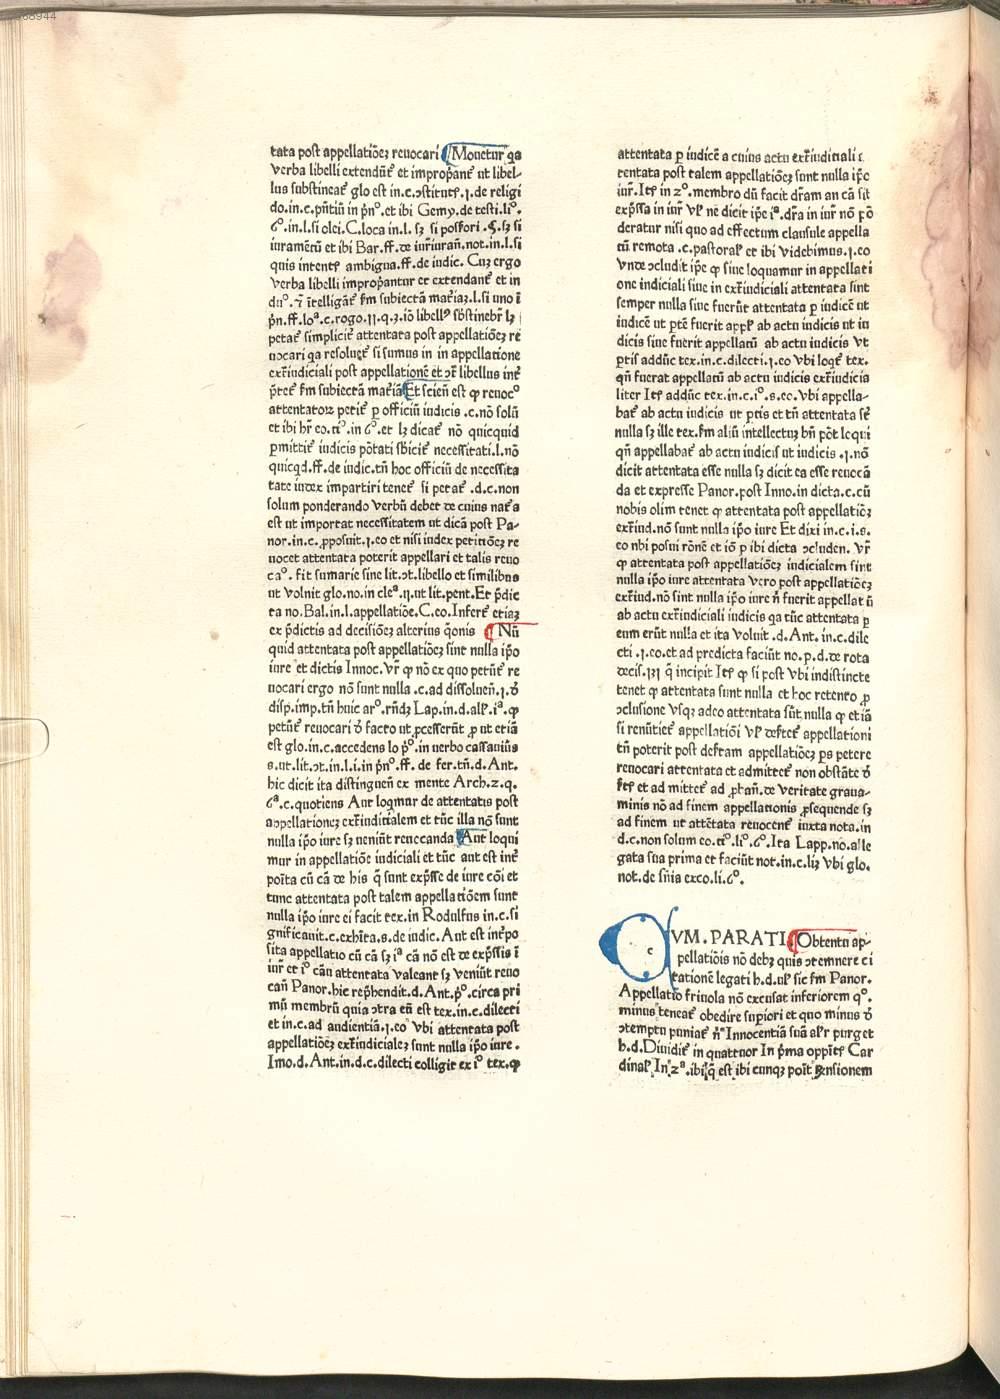 tata post appellatiōeꝫ reuocari Mouetur qa
verba libelli extendūt᷑ et impropāt᷑ ut libel-
lus substineat᷑ glo est in.c.ↄstitut᷑.ı.de religi
do.in.c.pn̄tiū in pn̄º.et ibi Gemy.de testi.liº.
6º.in.l.si olei.C.loca in.l. sꝫ si possori .§.sꝫ si
iuramētū et ibi Bar.ff.de iur̄iurań.not.in.l.si
quis intent᷑ ambigua.ff.de iudic. Cuꝫ ergo
verba libelli impropantur et extendant᷑ et in
petat᷑ simplicit᷑ attentata post appellatiōeꝫ re
uocari qa resoluet᷑ si sumus in in appellatione
extr̄iudiciali post appellationē et ↄr̄ libellus int᷑
p̄tet᷑ fm subiectā mat᷑iā Et scień est ꝙ reuocº
attentatoꝝ petit᷑ ꝑ officiū iudicis .c.nō solū
et ibi hr̄ eo.tiº.in 6º.et lꝫ dicat᷑ nō quicquid
ꝑmittit᷑ iudicis pōtati sb̄icit᷑ necessitati.l.nō
quicqd.ff.de iudic.tn̄ hoc officiū de necessita
tate iudex impartiri tenet᷑ si petat᷑ .d.c.non
solum ponderando verbū debet de cuius nat᷑a
est ut importat necessitatem ut dicā post Pa-
nor.in.c.ꝓposuit.ı.eo et nisi iudex petitiōeꝫ re
uocet attentata poterit appellari et talis reuo
caº. fit sumarie sine lit.ↄt.libello et similibus
ut voluit glo.no.in cleª.ıı.ut lit.pent.Et p̄dic
ta no.Bal.in.l.appellatiōe.C.eo.Infert᷑ etiaꝫ
ex p̄dictis ad decisiōeꝫ alterius q̄onis Nū
quid attentata post appellatiōeꝫ sint nulla ip̄o
iure et dictis Innoc. Vr̄ ꝙ nō ex quo petūt᷑ re
uocari ergo nō sunt nulla .c.ad dissolueń.ı.ō
disp.imp.tn̄ huic arº.rn̄dꝫ Lap.in.d.alꝉ.iª.ꝙ
petūt᷑ reuocari ō facto ut ꝓcesserūt ꝑ ut etiā
est glo.in.c.accedens lo p̄º.in uerbo cassauiūs
s.ut.lit.ↄt.in.l.i.in pn̄º.ff. de fer.tn̄.d.Ant.
hic dicit ita distinguen̄ ex mente Arch.z.q.
6ª.c.quotiens Aut loqmur de attentatis post
appellationeꝫ extr̄iuditialem et tūc illa nō sunt
nulla ip̄o iure sꝫ ueniūt reuocanda Aut loqui
mur in appellatiōe iudiciali et tūc aut est int᷑
poi᷑ta cū cā de his q̄ sunt exp̄sse de iure cōi et
tunc attentata post talem appellationem sunt
nulla ip̄o iure ei facit tex.in Rodulfus in.c.si
gnificauit.c.exhita.s.de iudic. Aut est int᷑po
sita appellatio cū cā sꝫ iª cā nō est de exp̄ssis ī
iur̄ et iº cāu attentata valeant sꝫ veniūt reuo
cań Panor.hic rep̄hendit.d.Ant.p̄º.circa pri
mū membrū quia ↄtra eū est tex.in.c.dilecti
et in.c.ad audientiā.ı.eo vbi attentata post
appellatiōeꝫ extr̄iudicialeꝫ sunt nulla ip̄o iure.
Imo.d.Ant.in.d.c.dilecti colligit ex iº tex.ꝙ
attentata ꝑ iudicē a cuius actu extr̄iuditiali
tentata post talem appellatiōeꝫ sunt nulla ip̄o
iur̄. Itꝫ in zº.membro dū facit dr̄am an cā sit
exp̄ssa in iur̄ vꝉ nē dicit ip̄e iª.dr̄a in iur̄ nō pō
deratur nisi quo ad effectum clausule appella
tū remota .c.pastoral᷑ et ibi videbimus.ı.eo
vnde ↄcludit ip̄e ꝙ siue loquamur in appellati
one iudiciali siue in extr̄iudiciali attentata sint
semper nulla siue fuerūt attentata ꝑ iudicē ut
iudicē ut ptē fuerit appꝉ ab actu iudicis ut iu
dicis siue fuerit appellatū ab actu iudicis vt
ptis adduc tex.in.c.dilecti.ı.eo vbi loqt᷑ tex.
qn̄ fuerat appellatū ab actu iudicis extr̄iudicia
liter Itꝫ adduc tex.in.c.iº.s.eo.vbi appella-
bat᷑ ab actu iudicis ut ptis et tn̄ attentata st᷑
nulla sꝫ ille tex.fm aliū intellectuꝫ bn̄ pōt loqui
qn̄ appellabat᷑ ab actu iudicis ut iudicis .ı.nō
dicit attentata esse nulla sꝫ dicit ea esse reuocā
da et expresse Panor.post Inno.in dicta.c.cū
nobis olim tenet ꝙ attentata post appellatiōeꝫ
extr̄iud.nō sunt nulla ip̄o iure Et dixi in.c.i.s.
eo nbi posui rōnē et iō ꝑ ibi dicta ↄcluden. Vr̄
ꝙ attentata post appellatiōeꝫ iudicialem sint
nulla ip̄o iure attentata vero post appellatiōeꝫ
extr̄iud.nō sunt nulla ip̄o iure n̄ fuerit appellatū
ab actu extr̄iudiciali iudicis qa tūc attentata ꝑ
eum erūt nulla et ita voluit .d.Ant. in.c.dile
cti .ı.eo.et ad predicta faciūt no.p.d.de rota
decis.ı3ı q̄ incipit Itꝫ ꝙ si post vbi indistincte
tenet ꝙ attentata sunt nulla et hoc reteneo ꝓ
ↄclusione vsqꝫ adeo attentata sūt nulla ꝙ etiā
si renūtiet᷑ appellatiōi vꝉ desertet᷑ appellationi
tn̄ poterit post desertam appellatiōeꝫ ps petere
reuocari attentata et admittet᷑ non obstāte ō
et ad mittet᷑ ad ꝓbań.de veritate graua-
minis nō ad finem appellationis ꝓsequende sꝫ
ad finem ut attētata reuocent᷑ iuxta nota.in
d.c.non solum eo.tiº.liº.6º.Ita Lapp.no.alle
gata sua prima et faciūt not.in.c.liꝫ vbi glo.
not.de sn̄ia exco.li.6º.
c
VM.PARATI. Obtentu ap-
pellatiōis nō debꝫ quis ↄtemnere ci
tationē legati h.d.uꝉ sic fm Panor.
Appellatio friuola nō excusat inferiorem qº.
minus teneat᷑ obedire supiori et quo minus ō
ↄtemptu puniat᷑ n̄ Innocentiā suā alꝉr purget
h.d.Diuidit᷑ in quattuor In p̄ma oppōit᷑ Car
dinaꝉ In zª.ibi q̄ est ibi cunqꝫ poīt Rn̄sionem